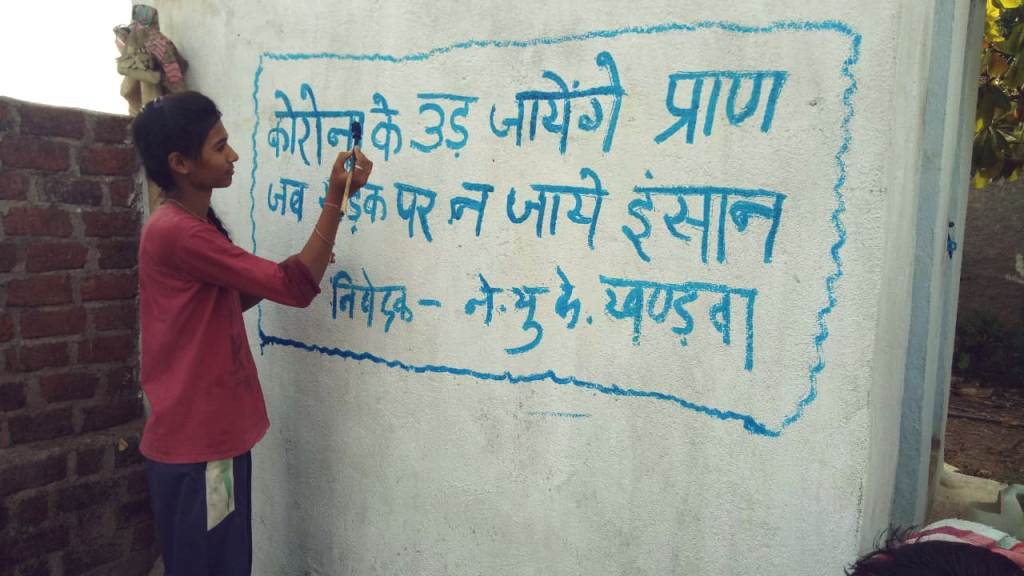 कोरोना के उड़ जायेंगे प्राण
जब सड़क पर न जाये इंसान
निवेदक - ने.यु.के. खण्डवा